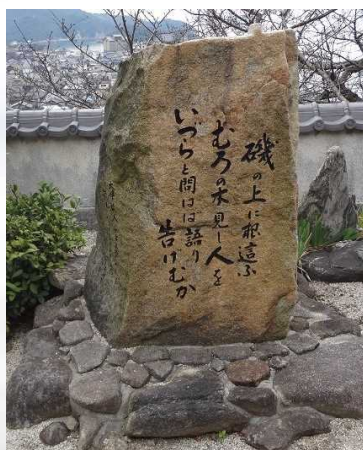 磯の上に根這ふ
むろの木見し人を
いづらと問はは語り
告げむか